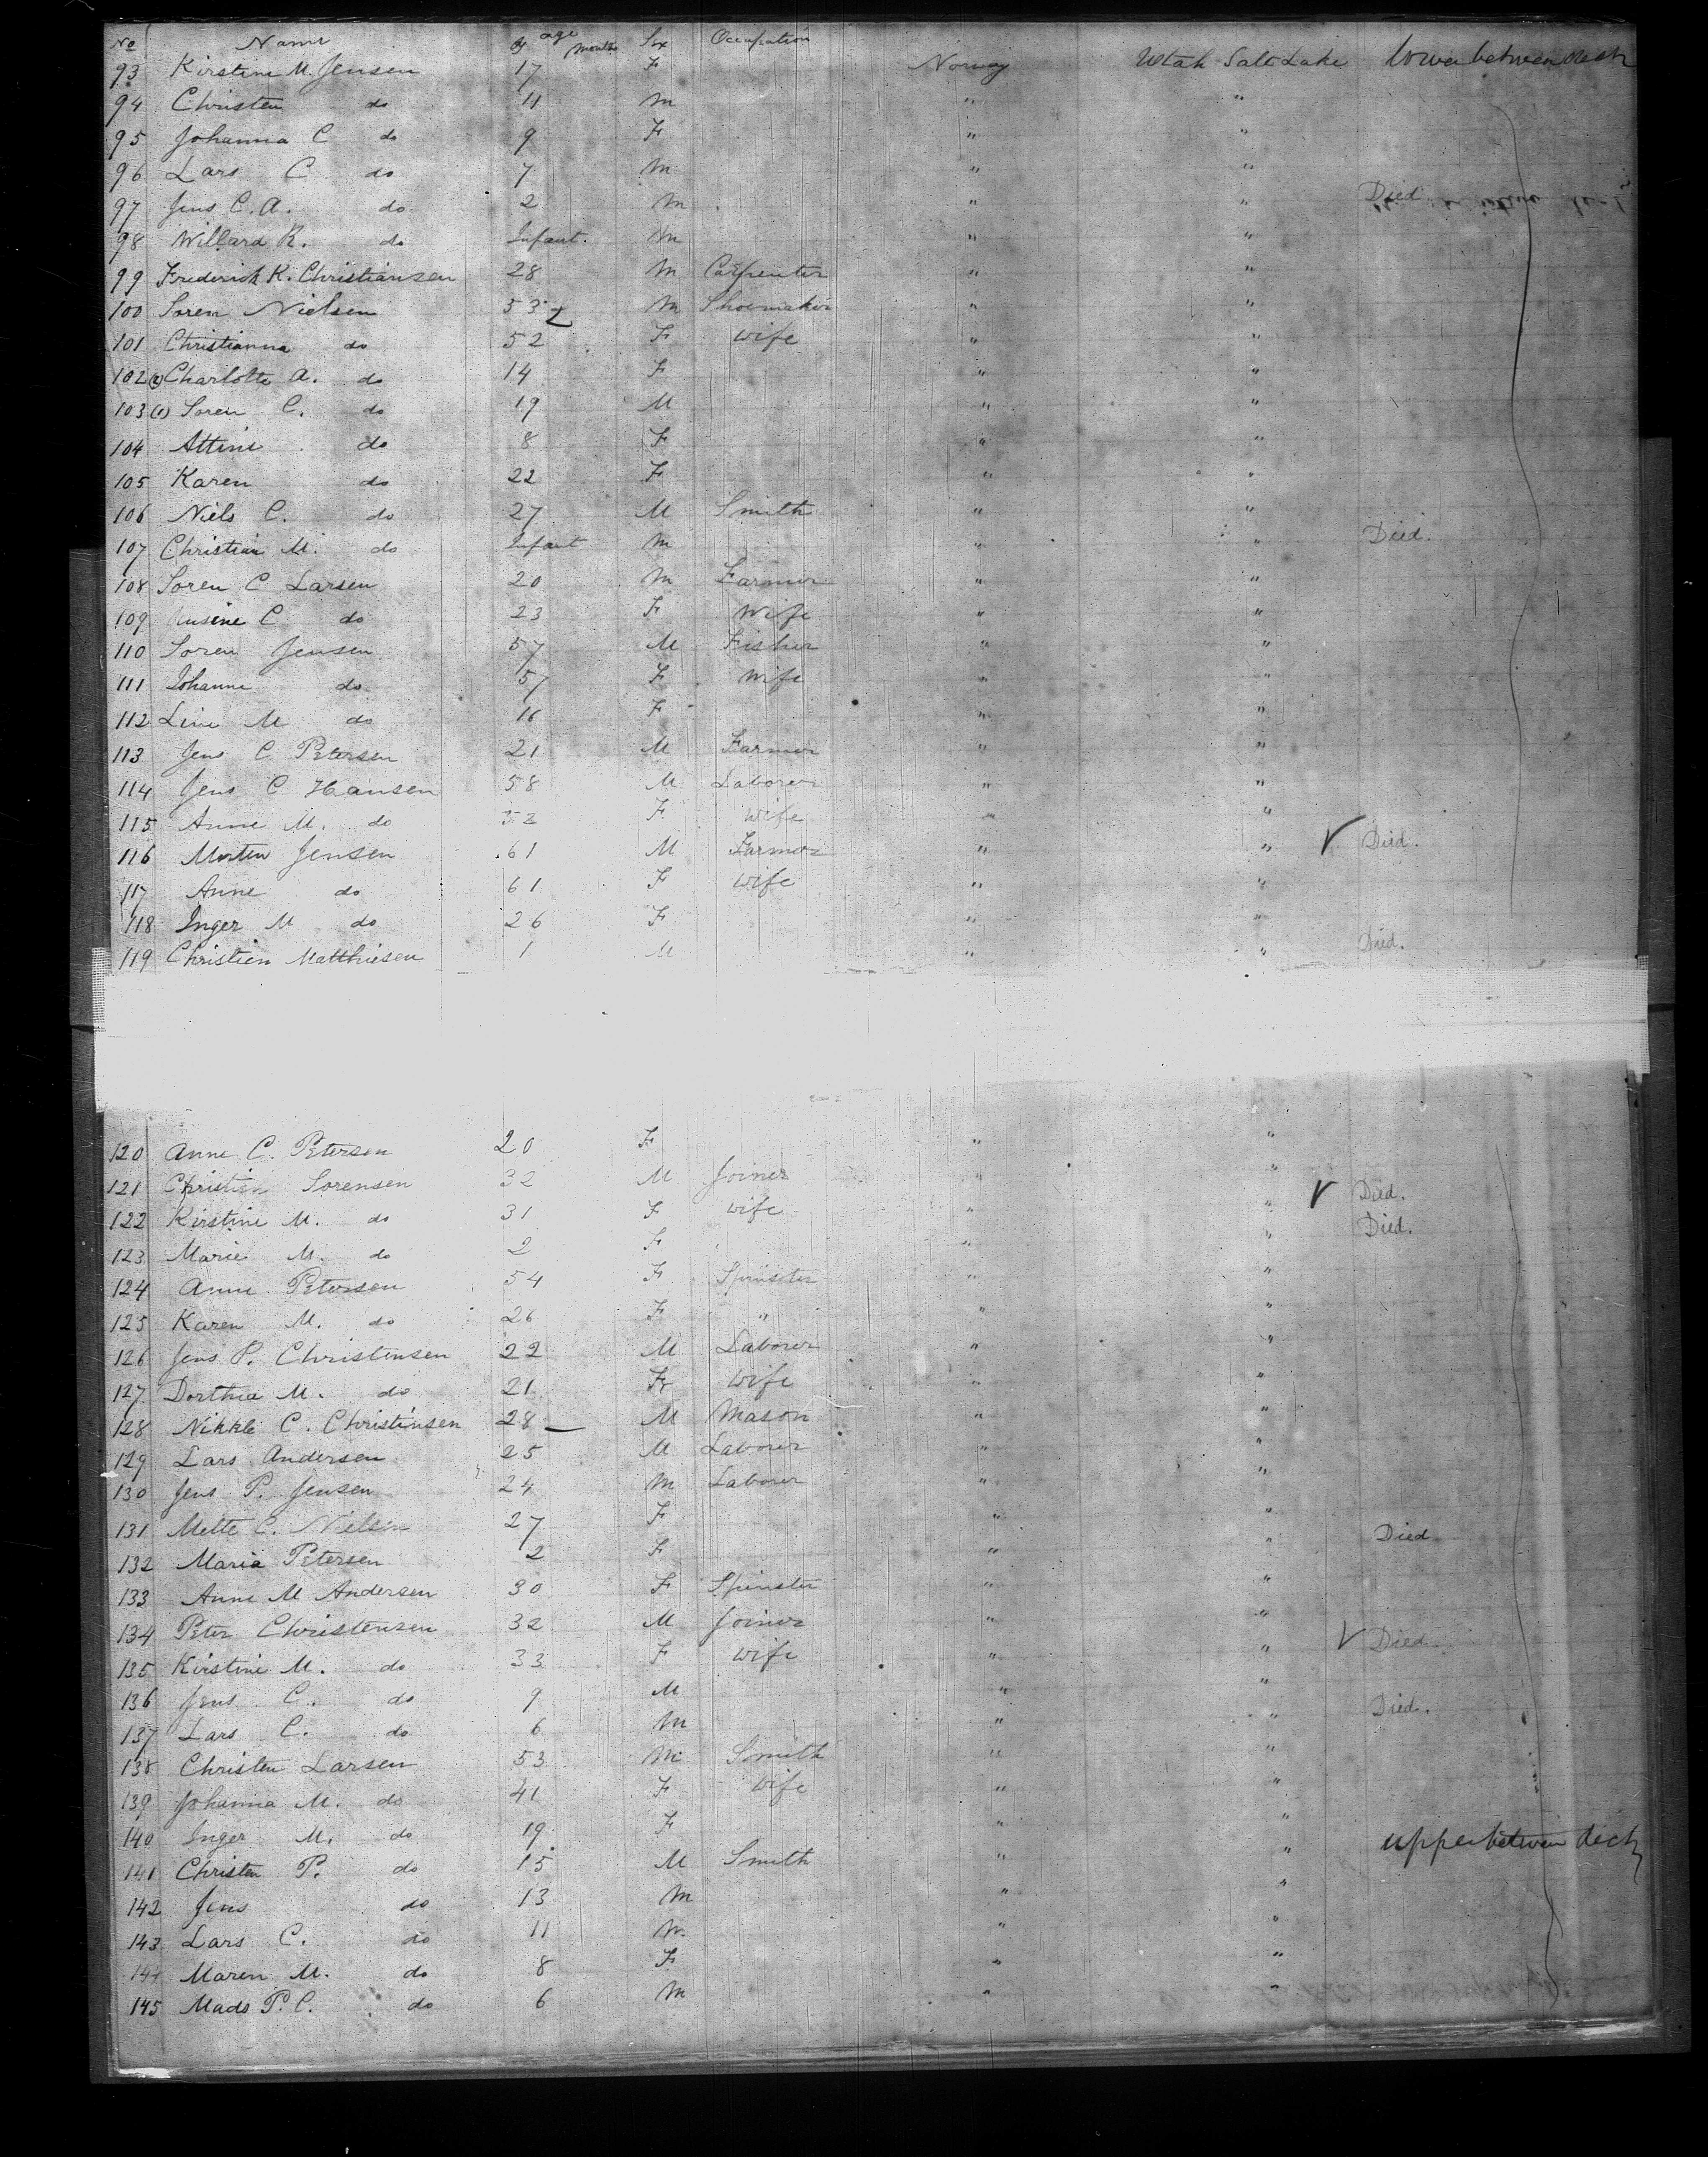 No Name age Y months Sex Occupation
93 Kirstine M. Jensen 17 F Norway Utah Salt Lake lower between deck
94 Christen do 11 M " "
95 Johanna C do 9 F " "
96 Lars C do 7 M " "
97 Jens C. A. do 2 M " " Died
98 Willard R. do Infant. M " "
99 Frederick K. Christiansen 28 M Carpenter " "
100 Soren Nielsen 53 M Shoemaker " "
101 Christianna do 52 F wife " "
102 (2) Charlotte A. do 14 F " "
103 (1) Soren C. do 19 M " "
104 Attine do 8 F " "
105 Karen do 22 F " "
106 Niels C. do 27 M Smith " "
107 Christian M. do Infant M " " Died.
108 Soren C Larsen 20 M Farmer " "
109 C do 23 F Wife " "
110 Soren Jensen 57 M Fisher " "
111 Johanne do 57 F Wife " "
112 Line M do 16 F " "
113 Jens C Petersen 21 M Farmer " "
114 Jens C. Hansen 58 M Laborer " "
115 Anne M. do 52 F Wife " "
116 Morten Jensen 61 M Farmer " " Died.
117 Anne do 61 F Wife " "
118 Inger M do 26 F " "
119 Christien Matthiesen 1 M " " Died.
120 Anne C. Petersen 20 F " "
121 Christien Sorensen 32 M Joiner " " Died.
122 Kirstine M. do 31 F wife " " Died.
123 Marie M. do 2 F " "
124 Anne Petersen 54 F Spinster " "
125 Karen M. do 26 F " " "
126 Jens P. Christensen 22 M Laborer " "
127 Dorthea M. do 21 F Wife " "
128 Nikkle C. Christensen 28 M Mason " "
129 Lars Andersen 25 M Laborer " "
130 Jens P. Jensen 24 M Laborer " "
131 Mette C. Nielsen 27 F " "
132 Maria Petersen 2 F " " Died
133 Anne M Andersen 30 F Spinster " "
134 Peter Christensen 32 M Joiner " "
135 Kirstine M. do 33 F wife " " Died.
136 Jens C. do 9 M " "
137 Lars C. do 6 M " " Died.
138 Christen Larsen 53 M Smith " "
139 Johanna M. do 41 F Wife " "
140 Inger M. do 19 F " "
141 Christen P. do 15 M Smith " " upper between deck
142 Jens do 13 M " "
143 Lars C. do 11 M. " "
144 Maren M. do 8 F " "
145 Mads P. C. do 6 M " "